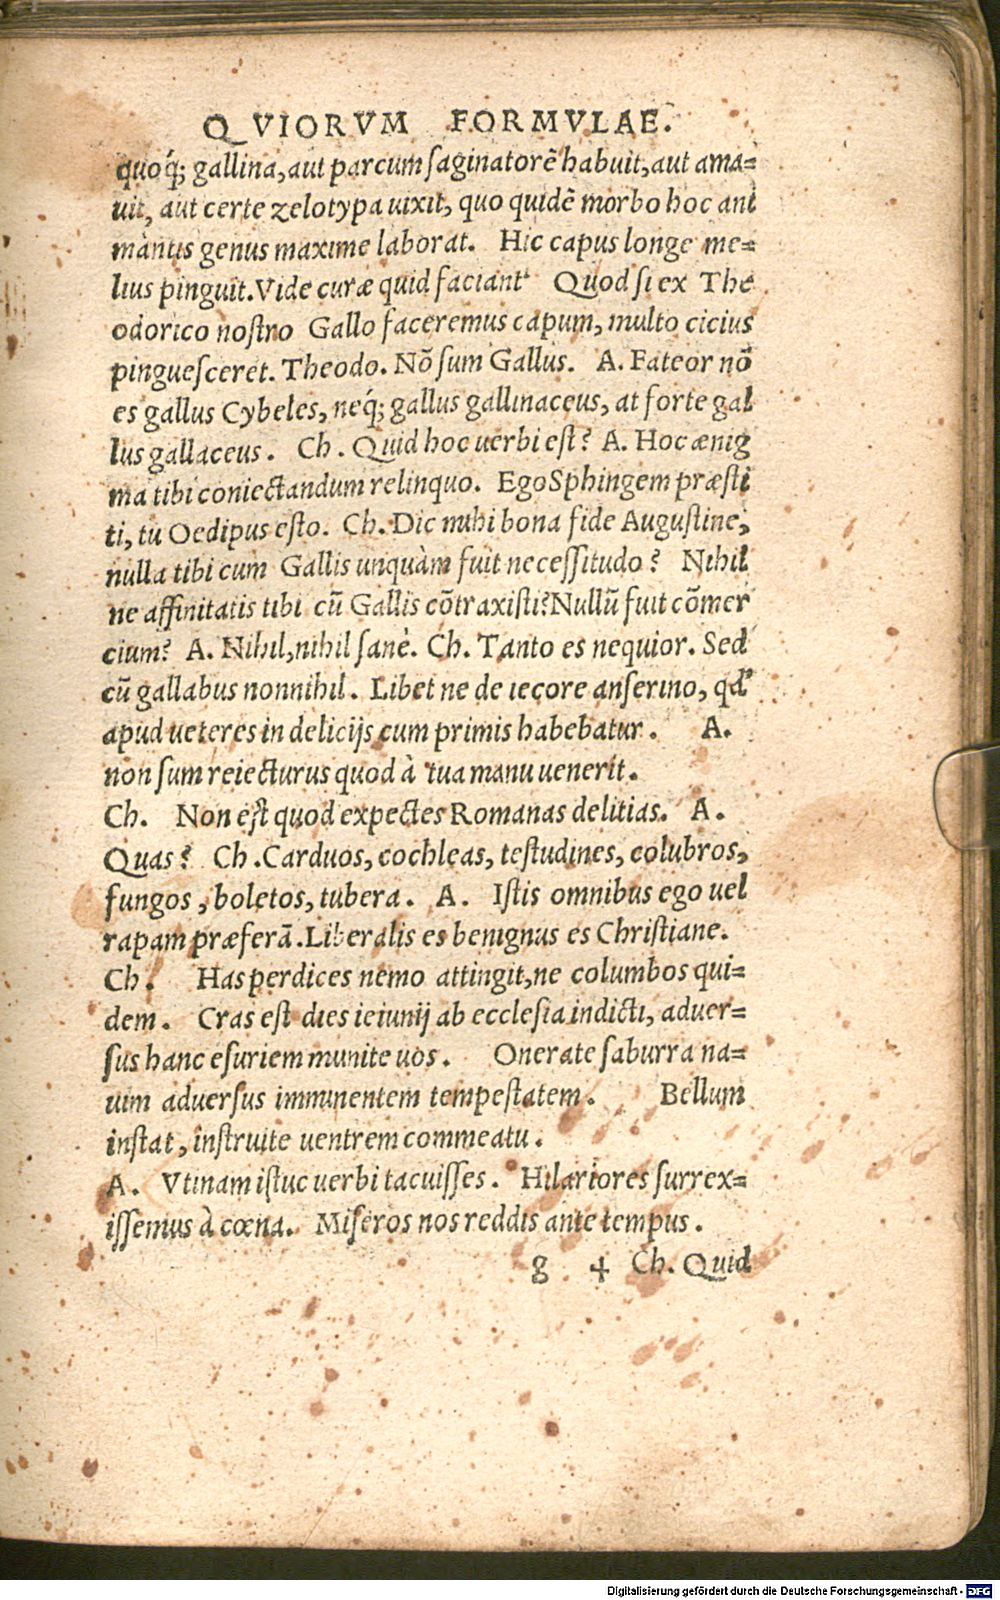 Q VIORVM FORMVLAE.
quoq́; gallina, aut parcum saginatorē habuit, aut ama=
uit, aut certe zelotypa uixit, quo quidē morbo hoc ani
mantis genus maxime laborat. Hic capus longe me=
lius pinguit. Vide curæ quid faciant Quod si ex The
odorico nostro Gallo faceremus capum, multo cicius
pinguesceret. Theodo. Nō sum Gallus. A. Fateor nō
es gallus Cybeles, neq́; gallus gallinaceus, at forte gal
lus gallaceus. Ch. Quid hoc uerbi est? A. Hoc ænig
ma tibi coniectandum relinquo. Ego Sphingem præsti
ti, tu Oedipus esto. Ch. Dic mihi bona fide Augustine,
nulla tibi cum Gallis unquàm fuit necessitudo? Nihil
ne affinitatis tibi cū Gallis cōtraxisti? Nullū fuit cōmer
cium? A. Nihil, nihil sanè. Ch. Tanto es nequior. Sed
cū gallabus nonnihil. Libet ne de iecore anserino, qd'
apud ueteres in delicijs cum primis habebatur. A.
non sum reiecturus quod à tua manu uenerit.
Ch. Non est quod expectes Romanas delitias. A.
Quas? Ch. Carduos, cochleas, testudines, colubros,
fungos, boletos, tubera. A. Istis omnibus ego uel
rapam præferā. Liberalis es benignus es Christiane.
Ch. Has perdices nemo attingit, ne columbos qui=
dem. Cras est dies ieiunij ab ecclesia indicti, aduer=
sus hanc esuriem munite uos. Onerate saburra na=
uim aduersus imminentem tempestatem. Bellum
instat, instruite uentrem commeatu.
A. Vtinam istuc uerbi tacuisses. Hilariores surrex=
issemus à cœna. Miseros nos reddis ante tempus.
g 4 Ch. Quid
Digitalisierung gefördert durch die Deutsche Forschungsgemeinschaft - DFG